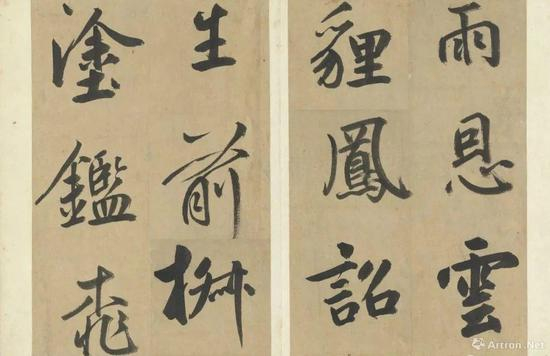 雨恩雲
貍鳳詔
生前
塗鑑
Artron.Net